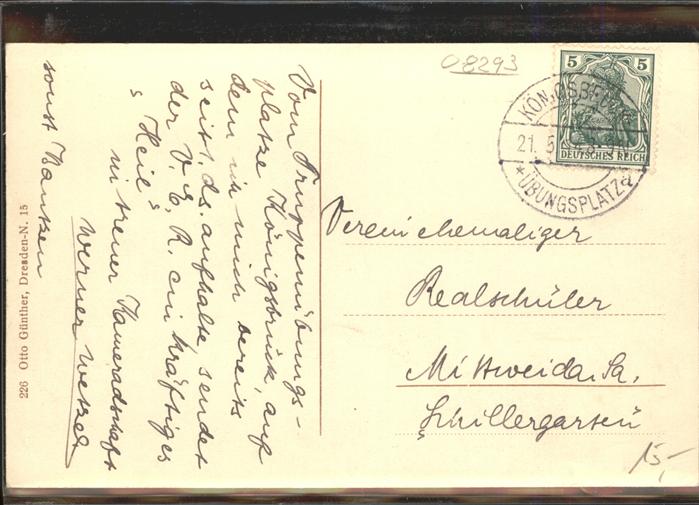 08293
Vom Truppenübungs-
platze Königsbrück, auf
dem ich mich bereits
seit 1. ds. aufhalte, sendet
der V. E. R. ein kräftiges
"Heil"
in treuer Kameradschaft
Werner Wetzel
sonst Bautzen
226 Otto Günther, Dresden-N. 15
5 5
DEUTSCHES REICH
KÖNIGSBRÜCK
21. 5.
*ÜBUNGSPLATZ*
Verein ehemaliger
Realschüler
Mittweida Sa.
Schillergarten
15,-